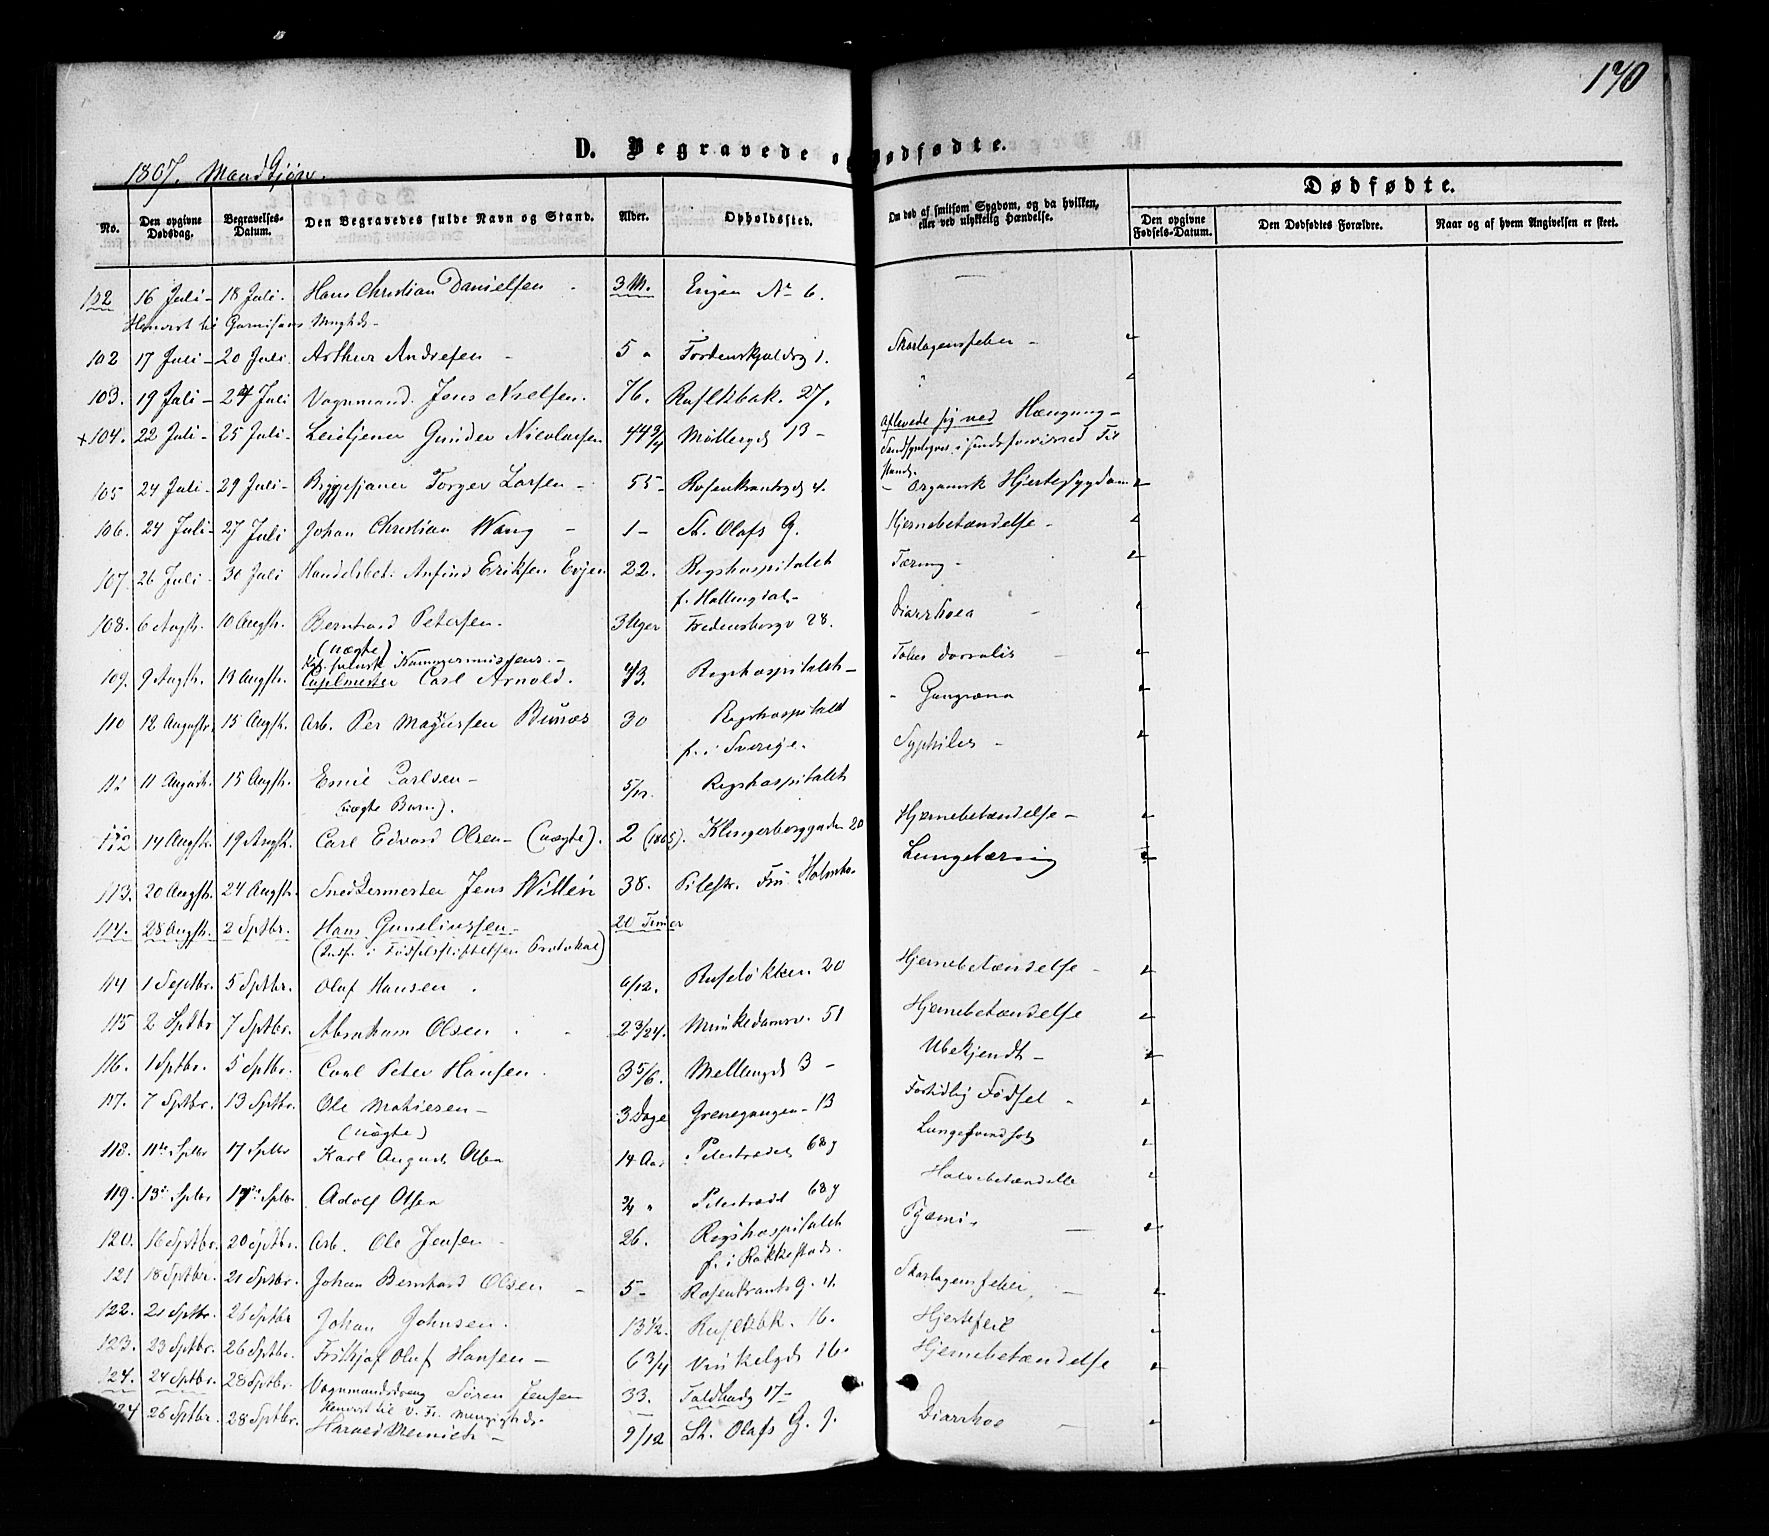 170
D. Begravede og Dødfødte.
1867. Mandkjøn.
No. | Den opgivne Dødsdag. | Begravelses-Datum. | Den Begravedes fulde Navn og Stand. | Alder. | Opholdssted. | Om død af smitsom Sygdom, og da hvilken, eller ved ulykkelig Hændelse. | Dødfødte.
Den opgivne Fødsels-Datum. | Den Dødfødtes Forældre. | Naar og af hvem Angivelsen er skeet.
102 16 Juli - 18 Juli. Hans Christian Danielsen - 3 M. Engen No 6.
Henvist til Garnisons Mghds -
102 17 Juli - 20 Juli Arthur Andresen - 5 " Tordenskjoldsg 1. Skarlagensfeber -
103. 19 Juli - 24 Juli Vognmand. Jens Nielsen. 76. Ruslkbak. 27. "
+104. 22 Juli - 25 Juli - Leietjener Gunder Nicolaisen 44 3/4 Möllergd 13 - Aflevede sig ved Hængning -
Sandsynligvis i sindsforvirred Til
stand.
105 24 Juli - 29 Juli - Byggesjauer Torger Larsen - 55 - Rosenkrantzgd 4. - Organisk Hjertesygdom
106. 24 Juli - 27 Juli Johan Christian Wang - 1 - St. Olafs G. Hjernebetændelse -
107. 26 Juli - 30 Juli Handelsbet. Anfind Eriksen Evjen 22. Rigshospitalet Tæring -
f. Hallingdal -
108. 6 Augst. 10 Augstr. Bernhard Petersen. 3 Uger Fredensborgv 28. Diarrhoea -
(uægte)
Kgl. svensk Kammermusicus. -
109. 9 Augstr. 13 Augstr. Capelmester Carl Arnold. 73. Rigshospitalet - Tabes dorsalis -
110 12 Augustr. 15 Augstr. Arb. Per Magnussen Bunæs 30 Rigshospitalet - Gangræna
f. i Sverige. Syphiles -
112 11 Augustr. 15 Augstr. Emil Carlsen - 5/12. Rigshospitalet
(uægte Barn).
112 14 Augstr. 19 Augstr. Carl Edvard Olsen - (uægte). 2 (1865). Klingenberggaden 20 Hjernebetændelse -
113. 20 Augstr. 24 Augstr. Sneidermester Jens Willén 38. Pilestr. Fru Holmbo. Lungetæring
114. 28 Augstr. 2 Sptbr. Hans Guneliussen - 20 Timer
(Indf. i Fødselsstiftelsen Protokol)
114 1 Septbr. 5 Sptbr. Oluf Hansen . 6/12. Ruselökken 20 Hjernebetændelse -
115 2 Sptbr 7 Sptbr. Abraham Olsen . 2 3/24. Munkedamsv. 51 Hjernebetændelse
116. 1 Sptbr. 5 Sptbr. Carl Peter Hansen . 3 5/6. Mellemgd 3 - Ubekjendt -
117. 7 Sptbr. 13 Sptbr. Ole Mathiesen - 3 Dage Grænsegangen - 13 Fortidlig Födsel -
(uægte)
118. 11te Sptbr 17 Sptbr Karl August Olsen 14 Aar Pilestrædet 68 g Lungesvindsot
119. 13de Sptbr 17de Sptbr Adolf Olsen 3/4 " Pilestrædet 68 g Halsbetændelse
120. 16 Sptbr. 20 Sptbr. Arb. Ole Jensen 26. Rigshospitalet Pyæmi.
f. i Rakkestad.
121 18 Sptbr. 21 Sptbr. Johan Bernhard Olsen - 5 - Rosenkrants G. 11. Skarlagensfeber. -
122. 21 Sptbr. 26 Sptbr Johan Johnsen. 13 1/2. Ruslkbk. 16. Hjertefeil
123. 23 Sptbr. 26 Sptbr. Fritkjof Oluf Hansen - 6 3/4 Vinkelgd 16. Hjernebetændelse
124. 24 Sptbr. 28 Sptbr. Vognmandsdreng Søren Jensen 33. Toldbodg 17 -
Henvist til V. Fr. Menigheds.
124 26 Sptbr. 28 Sptbr. Harald Meinich - 9/12 St. Olafs G. 9. Diarrhoe -